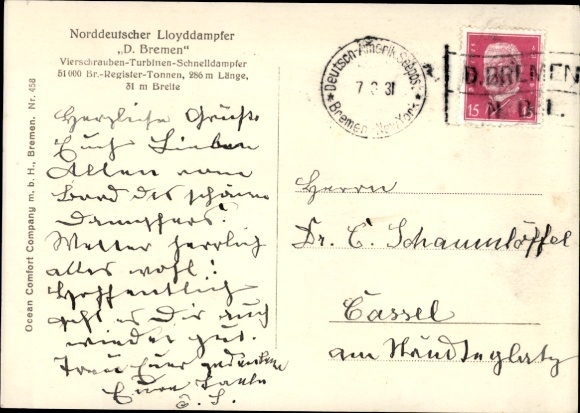 Norddeutscher Lloyddampfer
„D. Bremen"
Vierschrauben-Turbinen-Schnelldampfer
51 000 Br.-Register-Tonnen, 286 m Länge,
31 m Breite
Ocean Comfort Company m. b. H., Bremen. Nr. 458
Herzliche Grüße
Euch Lieben
Allen vom
Bord des schönen
Dampfers.
Wetter herrlich
alles wohl!
Hoffentlich
geht es Dir auch
wieder gut.
Treu Euer gedenkend
Eure Tante
E. S.
Deutsch-Amerik. Seepost
7 8 31
Bremen-New York
D. BREMEN
N. D. L.
15 15
Herrn
Dr. C. Schaumlöffel
Cassel
am Ständeplatz